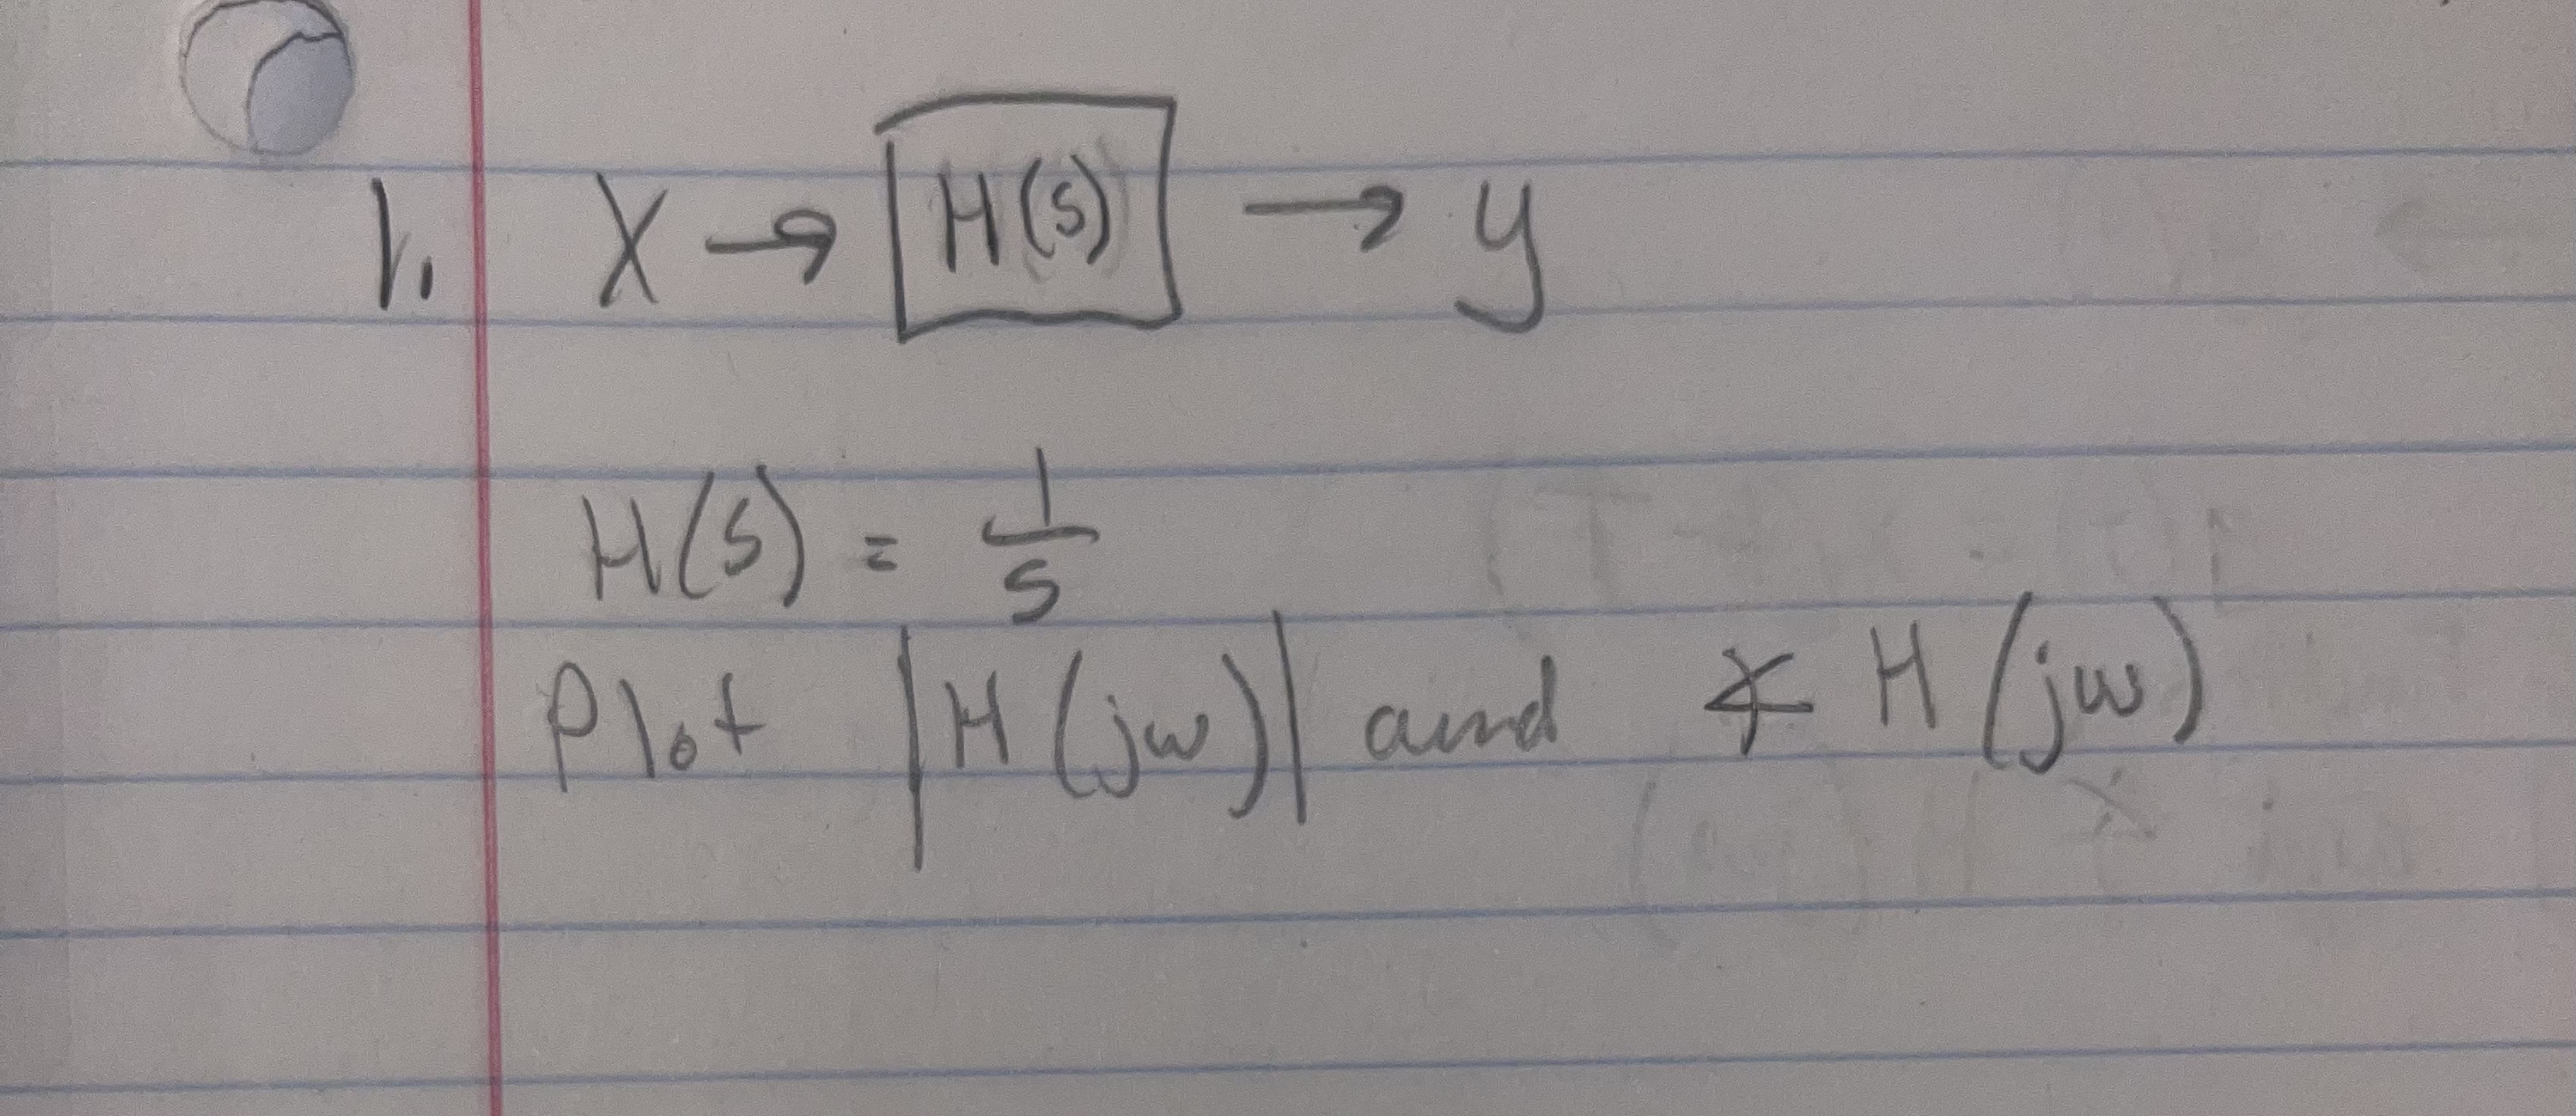 1. X → H(s) → y
H(s) = 1/s
Plot |H(jw)| and ∡ H(jw)